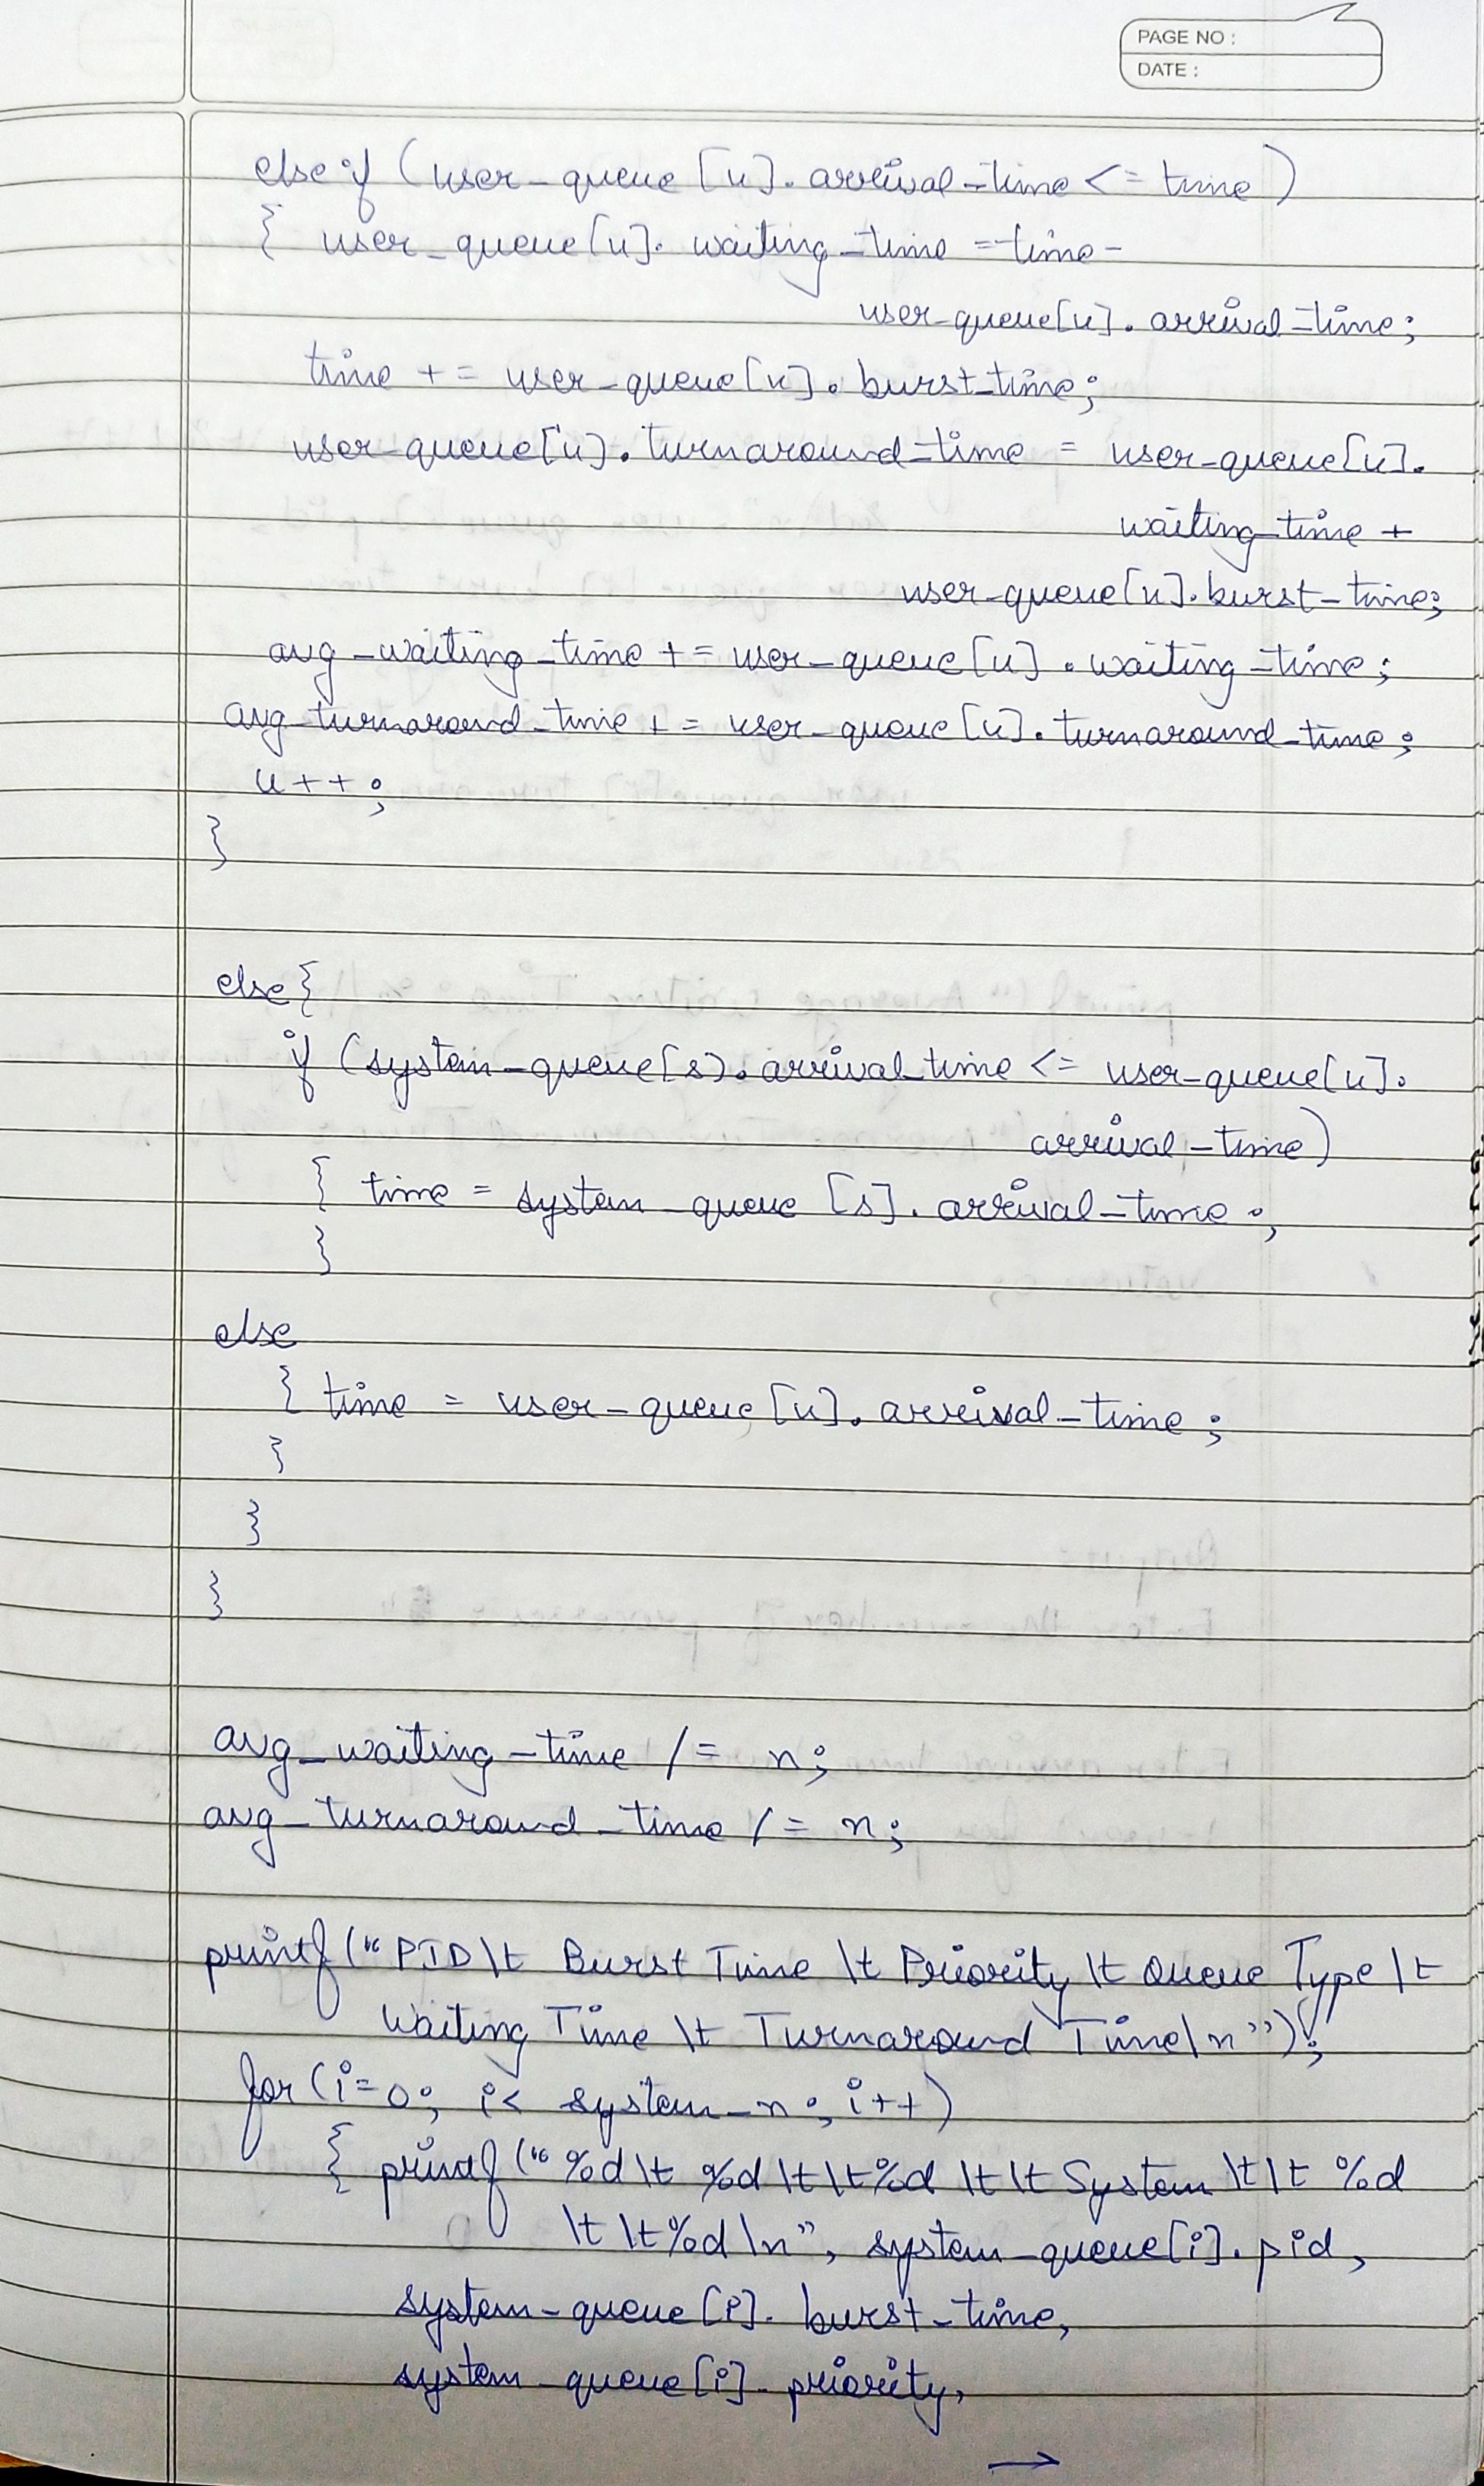 PAGE NO :
DATE :
else if (user_queue [u]. arrival_time <= time)
{ user_queue[u]. waiting_time = time -
user_queue[u]. arrival_time;
time += user_queue[u]. burst_time;
user_queue[u]. turnaround_time = user_queue[u].
waiting_time +
user_queue[u]. burst_time;
avg_waiting_time += user_queue[u]. waiting_time;
avg_turnaround_time += user_queue[u]. turnaround_time;
u++;
}
else{
if (system_queue[s). arrival_time <= user_queue[u].
arrival_time)
{ time = system_queue [s]. arrival_time;
}
else
{ time = user_queue[u]. arrival_time;
}
}
}
avg_waiting_time /= n;
avg_turnaround_time /= n;
printf("PID\t Burst Time \t Priority \t Queue Type \t
Waiting Time \t Turnaround Time\n");
for(i=0; i< system_n; i++)
{ printf("%d\t %d\t\t%d \t\t System \t\t %d
\t\t%d\n", system_queue[i]. pid,
system_queue[i]. burst_time,
system_queue[i]. priority,
→